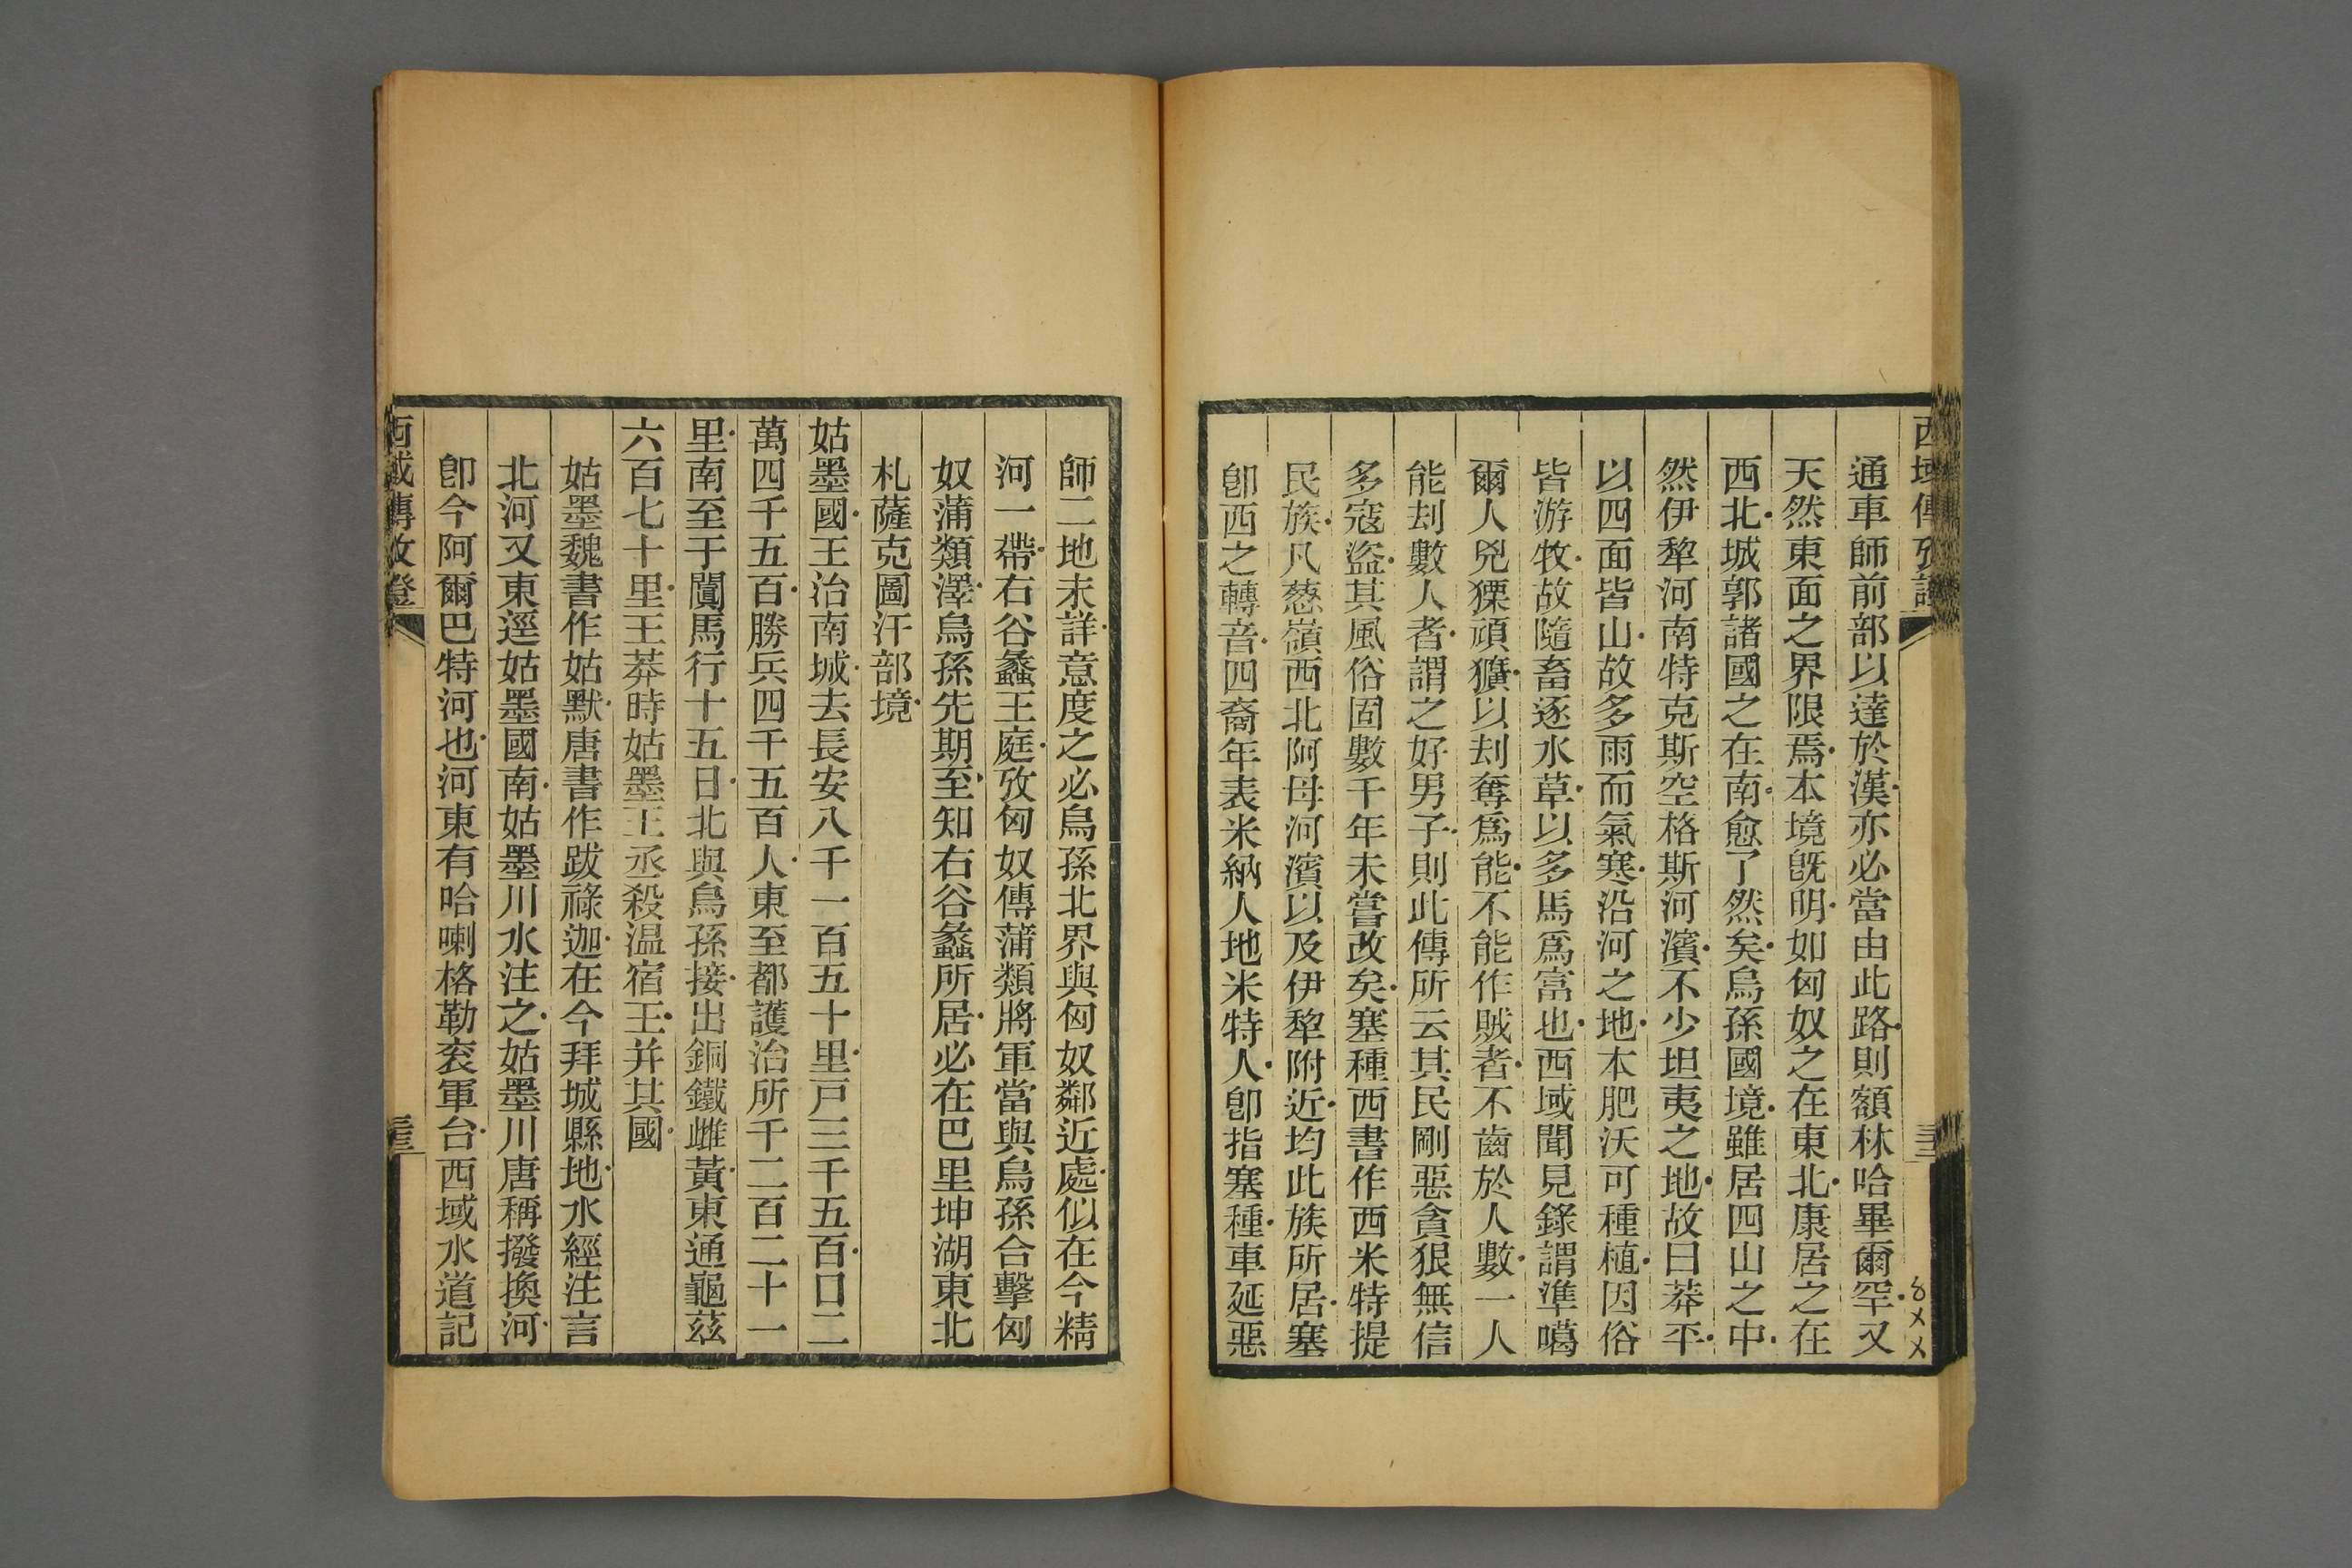 西域傳攷證
通車師前部以達於漢亦必當由此路則額林哈畢爾罕又
天然東面之界限焉本境既明如匈奴之在東北康居之在
西北城郭諸國之在南愈了然矣烏孫國境雖居四山之中
然伊犂河南特克斯空格斯河濱不少坦夷之地故曰莽平
以四面皆山故多雨而氣寒沿河之地本肥沃可種植因俗
皆游牧故隨畜逐水草以多馬爲富也西域聞見錄謂準噶
爾人兇猓頑獷以刦奪爲能不能作賊者不齒於人數一人
能刦數人者謂之好男子則此傳所云其民剛惡貪狠無信
多寇盜其風俗固數千年未嘗改矣塞種西書作西米特提
民族凡慈嶺西北阿母河濱以及伊犂附近均此族所居塞
卽西之轉音四裔年表米納人地米特人卽指塞種車延惡
師二地未詳意度之必烏孫北界與匈奴鄰近處似在今精
河一帶右谷蠡王庭攷匈奴傳蒲類將軍當與烏孫合擊匈
奴蒲類澤烏孫先期至知右谷蠡所居必在巴里坤湖東北
札薩克圖汗部境
姑墨國王治南城去長安八千一百五十里戸三千五百口二
萬四千五百勝兵四千五百人東至都護治所千二百二十一
里南至于闐馬行十五日北與烏孫接出銅鐵雌黃東通龜茲
六百七十里王莽時姑墨王丞殺温宿王并其國
姑墨魏書作姑默唐書作跋祿迦在今拜城縣地水經注言
北河又東逕姑墨國南姑墨川水注之姑墨川唐稱撥換河
卽今阿爾巴特河也河東有哈喇格勒衮軍台西域水道記
西域傳攷證